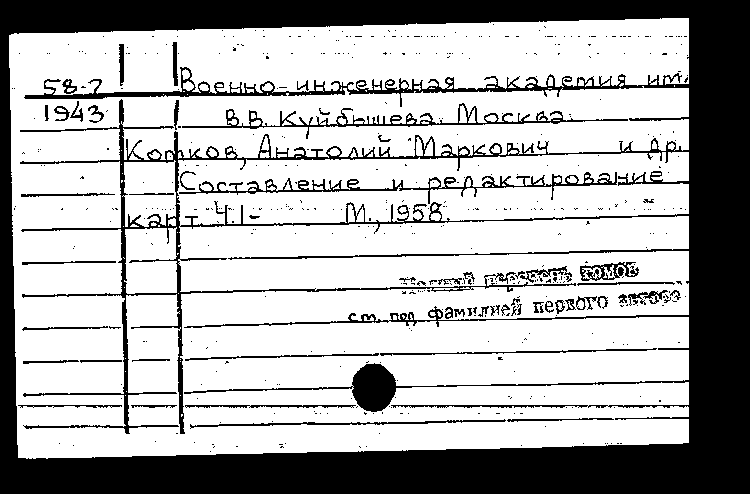 58-7 Военно-инженерная академия им.
1943 В.В. Куйбышева. Москва.
Котков, Анатолий Маркович и др.
Составление и редактирование
карт. Ч.1- М., 1958.
Полный перечень томов
см. под фамилией первого автора